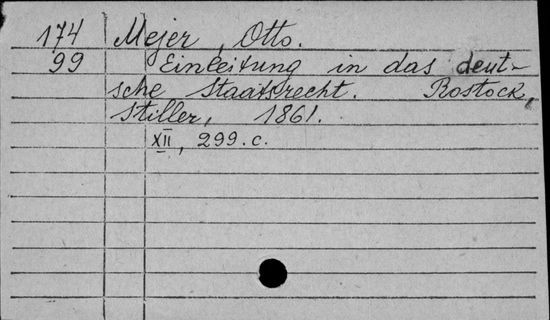 174 Mejer, Otto.
99 Einleitung in das deut-
sche Staatsrecht. Rostock,
Stiller, 1861.
XII, 299.c.